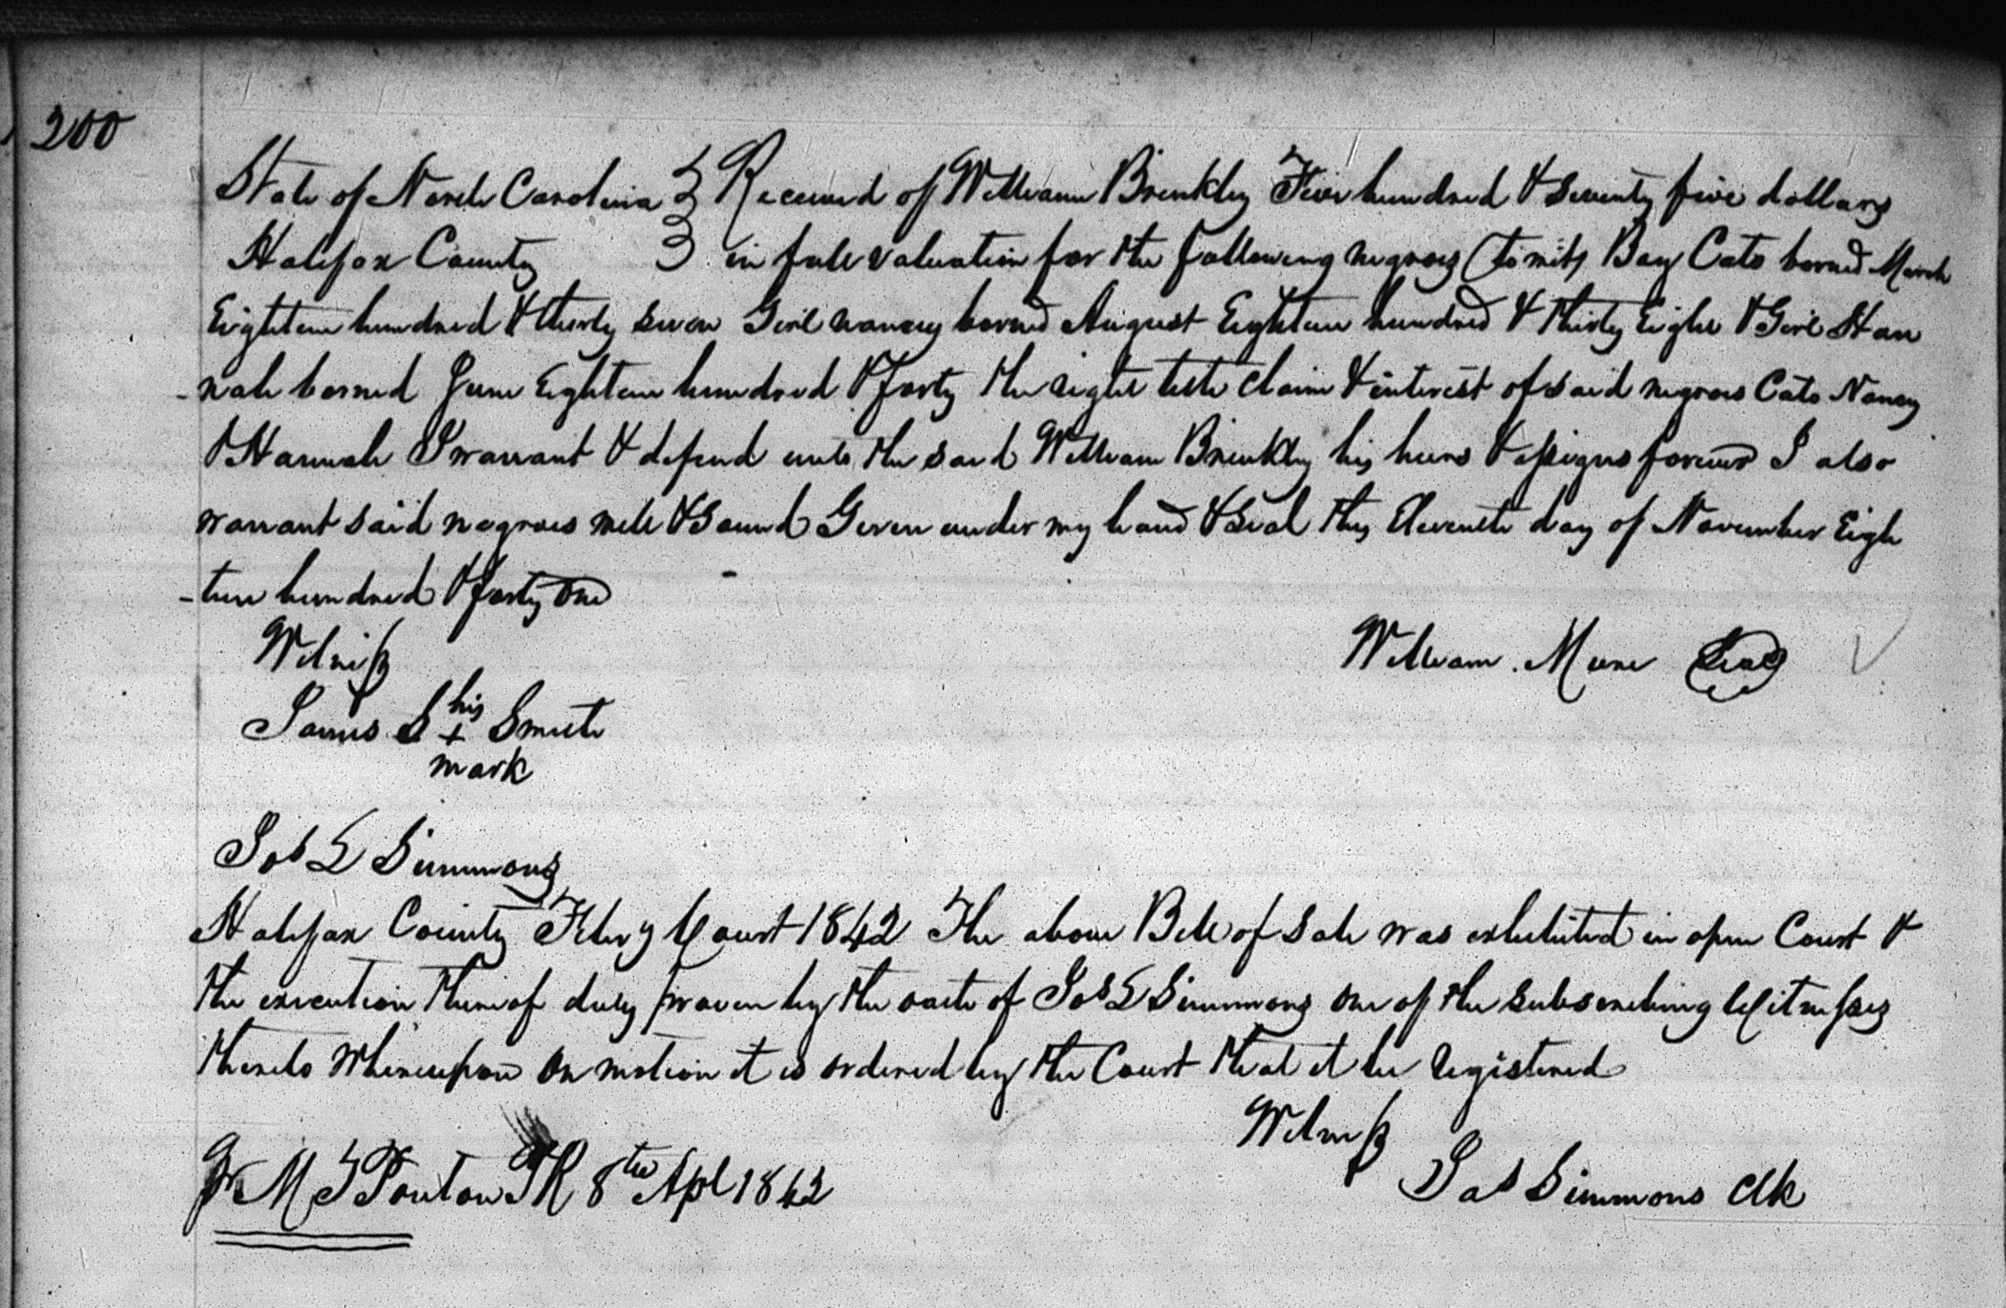 200
State of North Carolina } Received of William Brinkley Five hundred & seventy five dollars
Halifax County } in full valuation for the following negroes (to wit) Boy Cato borned March
Eighteen hundred & thirty seven Girl nancy borned August Eighteen hundred & thirty Eight & Girl Han
-nah borned June Eighteen hundred & forty the right title claim & interest of said negroes Cato Nancy
& Hannah I warrant & defend unto the said William Brinkley his heirs & assigns forever I also
warrant said negroes well & sound Given under my hand & seal this Eleventh day of November Eigh
-teen hundred & forty one
Witness
William . Seal
his
James S + Smith
mark
Jas L Simmons
Halifax County Feby Court 1842 The above Bill of Sale was exhibited in open Court &
the execution thereof duly proven by the oath of Jas L Simmons one of the subscribing Witnesses
thereto Whereupon on motion it is ordered by the Court that it be registered
Witness
Jas Simmons Clk
Pr M Ponton PR 8th Apl 1842